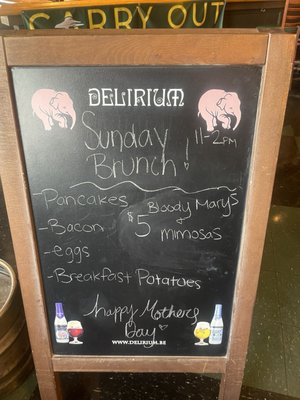 CARRY OUT
DELIRIUM
Sunday
Brunch!
11-2PM
-Pancakes
-Bacon
-eggs
-Breakfast Potatoes
$5
Bloody Mary's
+
mimosas
happy Mothers
Day
WWW.DELIRIUM.BE